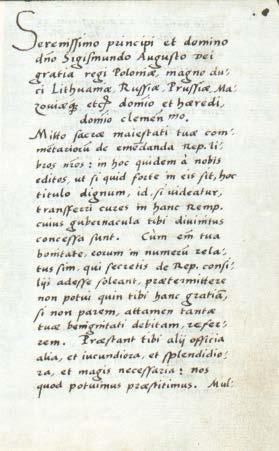 Serenissimo principi et domino
dño Sigismundo Augusto Dei
gratia regi Poloniæ, magno du-
ci Lithuaniæ, Russiæ, Prussiæ, Ma
zoviæq3 etcq3 domio et hæredi,
domio clemen mo.
Mitto sacræ maiestati tuæ com
mētariorū de emēdanda Rep. li-
bros nr̃os: in hoc quidem à nobis
editos, ut si quid forte in eis sit, hoc
titulo dignum, id, si videatur,
transferri cures in hanc Remp.
cuius gubernacula tibi divinitus
concessa sunt. Cùm em̃ tua
bonitate, eorum in numerū rela-
tus sim, qui secretis de Rep. consi-
lijs adesse soleant, prætermittere
non potui quin tibi hanc gratiā,
si non parem, attamen tantæ
tuæ benignitati debitam, refer-
rem. Præstant tibi alij officia
alia, et iucundiora, et splendidio-
ra, et magis necessaria: nos
quod potuimus præstitimus. Mul-